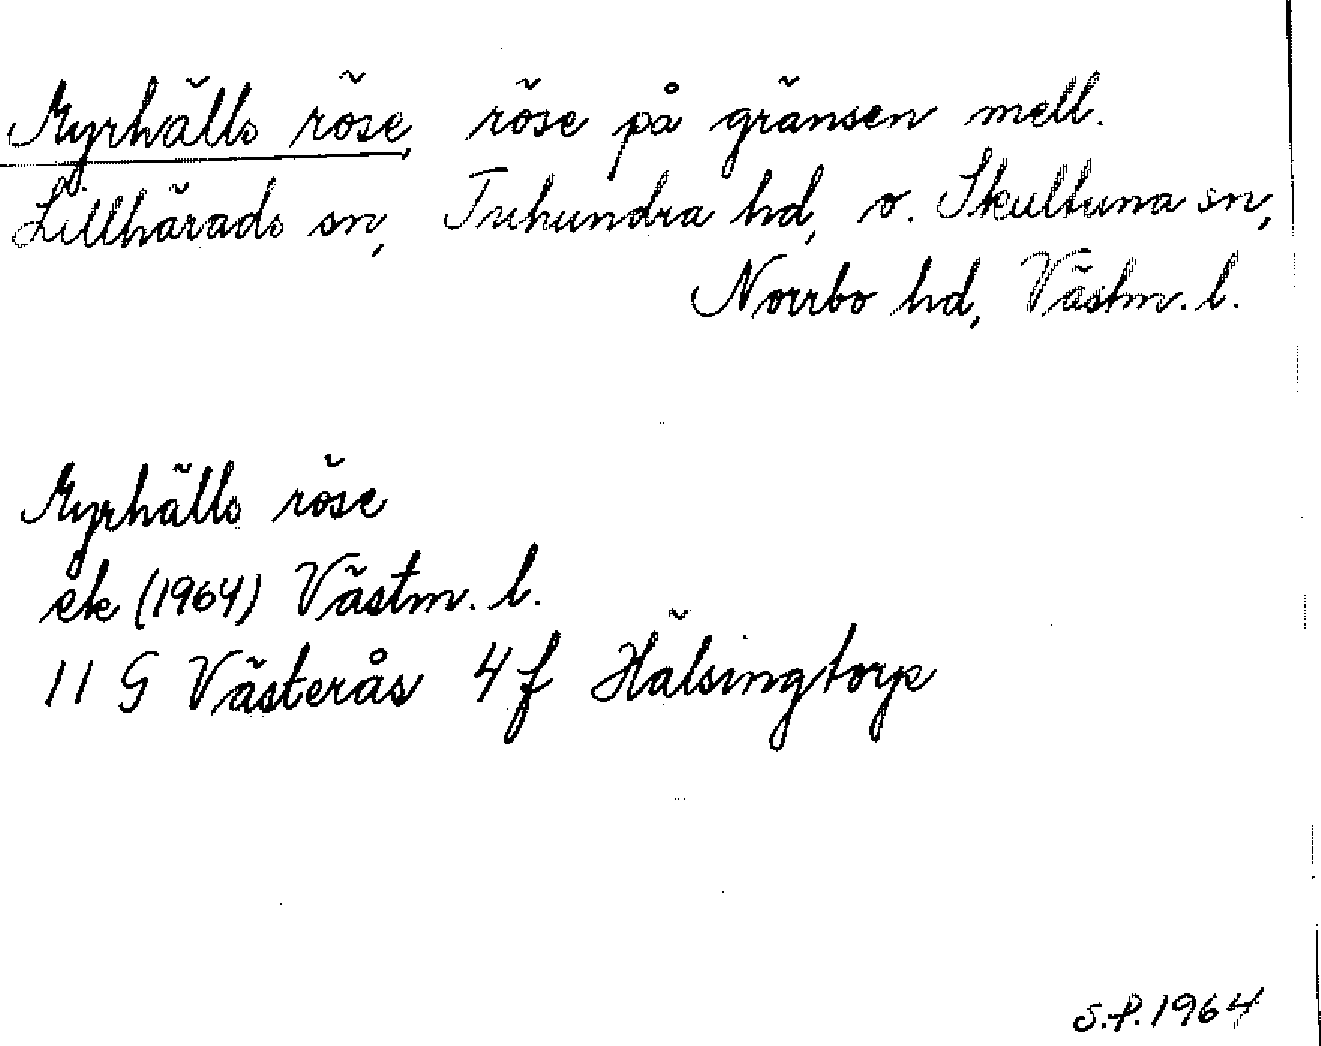 Myrhälls röse, röse på gränsen mell.
Lillhärads sn, Tuhundra hd, o. Skultuna sn,
Norrbo hd, Västm. l.
Myrhälls röse
ek (1964) Västm. l.
11 G Västerås 4 f Hälsingtorp
S.P. 1964